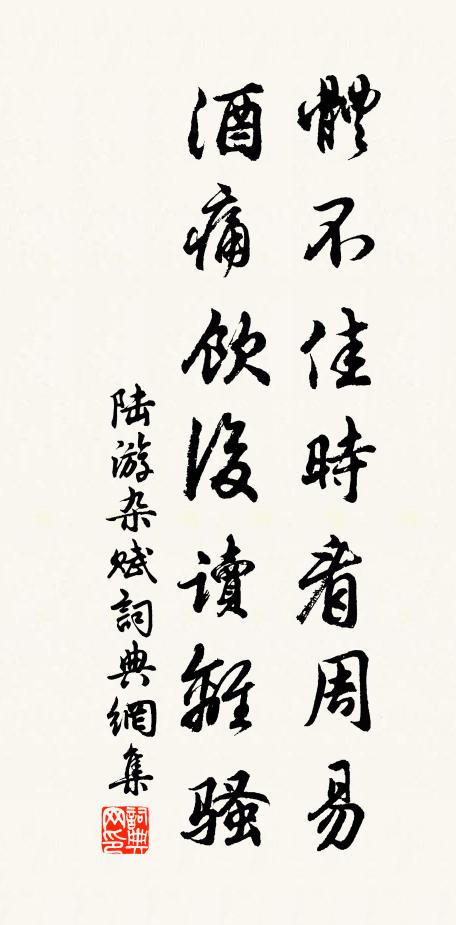 體不佳時看周易
酒痛飲後读離騷
陆游杂赋詞典網集
詞典網印